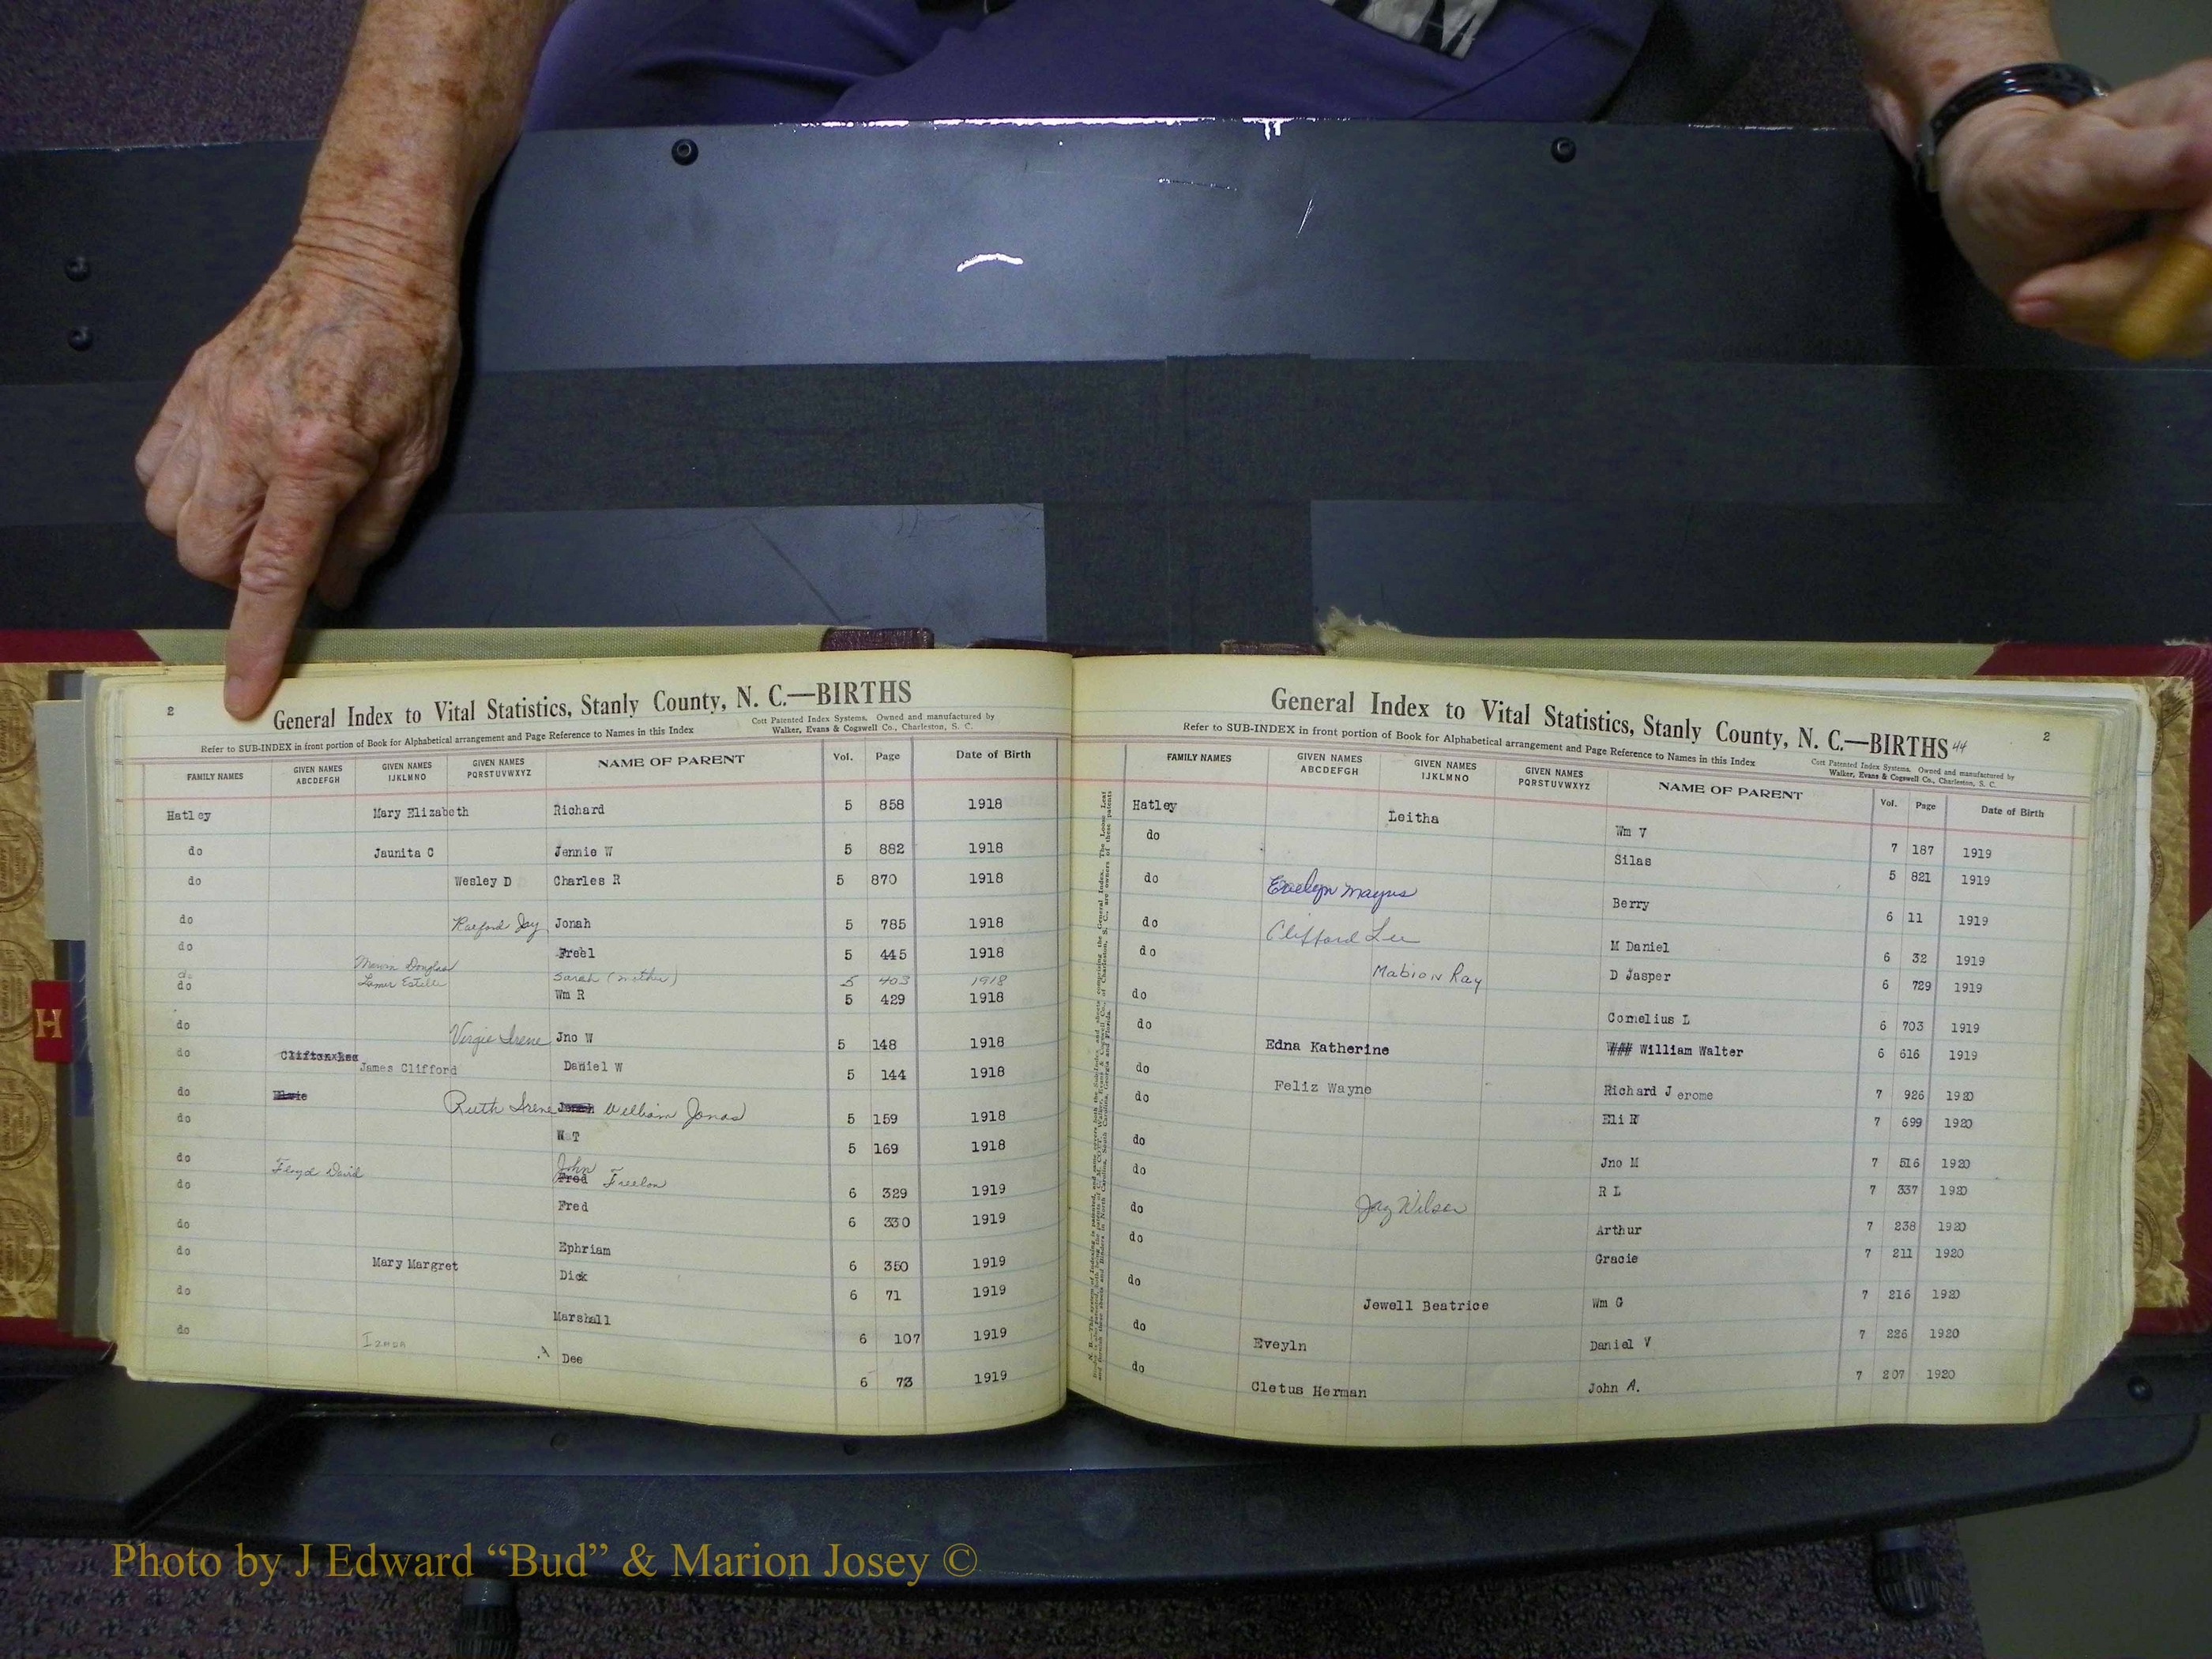 2
General Index to Vital Statistics, Stanly County, N. C.—BIRTHS
Refer to SUB-INDEX in front portion of Book for Alphabetical arrangement and Page Reference to Names in this Index
Cott Patented Index Systems. Owned and manufactured by
Walker, Evans & Cogswell Co., Charleston, S. C.
FAMILY NAMES GIVEN NAMES ABCDEFGH GIVEN NAMES IJKLMNO GIVEN NAMES PQRSTUVWXYZ NAME OF PARENT Vol. Page Date of Birth
Hatley Mary Elizabeth Richard 5 858 1918
do Jaunita C Jennie W 5 882 1918
do Wesley D Charles R 5 870 1918
do Raeford Jay Jonah 5 785 1918
do Freel 5 445 1918
do Douglas Sarah (mother) 5 403 1918
do Estelle Wm R 5 429 1918
do Virgie Irene Jno W 5 148 1918
do James Clifford Daniel W 5 144 1918
do Ruth Irene William Jonas 5 159 1918
do W T 5 169 1918
do Floyd David John Fred Freelon 6 329 1919
do Fred 6 330 1919
do Ephriam 6 350 1919
do Mary Margret Dick 6 71 1919
do Marshall 6 107 1919
do Dee 6 73 1919
H
General Index to Vital Statistics, Stanly County, N. C.—BIRTHS 44
2
Refer to SUB-INDEX in front portion of Book for Alphabetical arrangement and Page Reference to Names in this Index
Cott Patented Index Systems. Owned and manufactured by
Walker, Evans & Cogswell Co., Charleston, S. C.
FAMILY NAMES GIVEN NAMES ABCDEFGH GIVEN NAMES IJKLMNO GIVEN NAMES PQRSTUVWXYZ NAME OF PARENT Vol. Page Date of Birth
Hatley Leitha Wm V 7 187 1919
do Silas 5 821 1919
do Evelyn Berry 6 11 1919
do Clifford Lee M Daniel 6 32 1919
do Mabion Ray D Jasper 6 729 1919
do Cornelius L 6 703 1919
do Edna Katherine William Walter 6 616 1919
do Feliz Wayne Richard Jerome 7 926 1920
do Eli W 7 699 1920
do Jno M 7 516 1920
do R L 7 337 1920
do Jay Wilson Arthur 7 238 1920
do Gracie 7 211 1920
do Jewell Beatrice Wm G 7 216 1920
do Eveyln Daniel V 7 226 1920
do Cletus Herman John A. 7 207 1920
Photo by J Edward “Bud” & Marion Josey ©